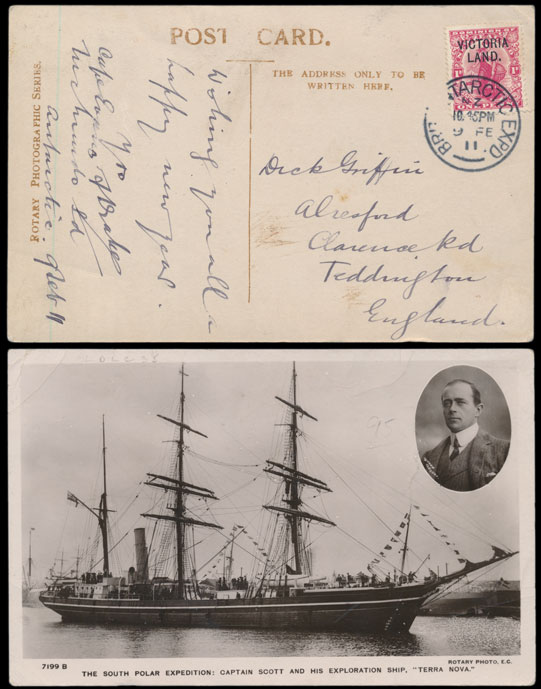 POST CARD.
THE ADDRESS ONLY TO BE
WRITTEN HERE.
VICTORIA
LAND.
BRIT. ANTARCTIC EXPD
N.Z.
10.45PM
9 FE
11
Wishing you all a
happy new year.
Yrs
F Drake
Cape Evans
McMurdo Sd
Antarctic. Feb. 11
ROTARY PHOTOGRAPHIC SERIES.
Dick Griffin
Alresford
Clarence Rd
Teddington
England.
7199 B
ROTARY PHOTO, E.C.
THE SOUTH POLAR EXPEDITION: CAPTAIN SCOTT AND HIS EXPLORATION SHIP, "TERRA NOVA."